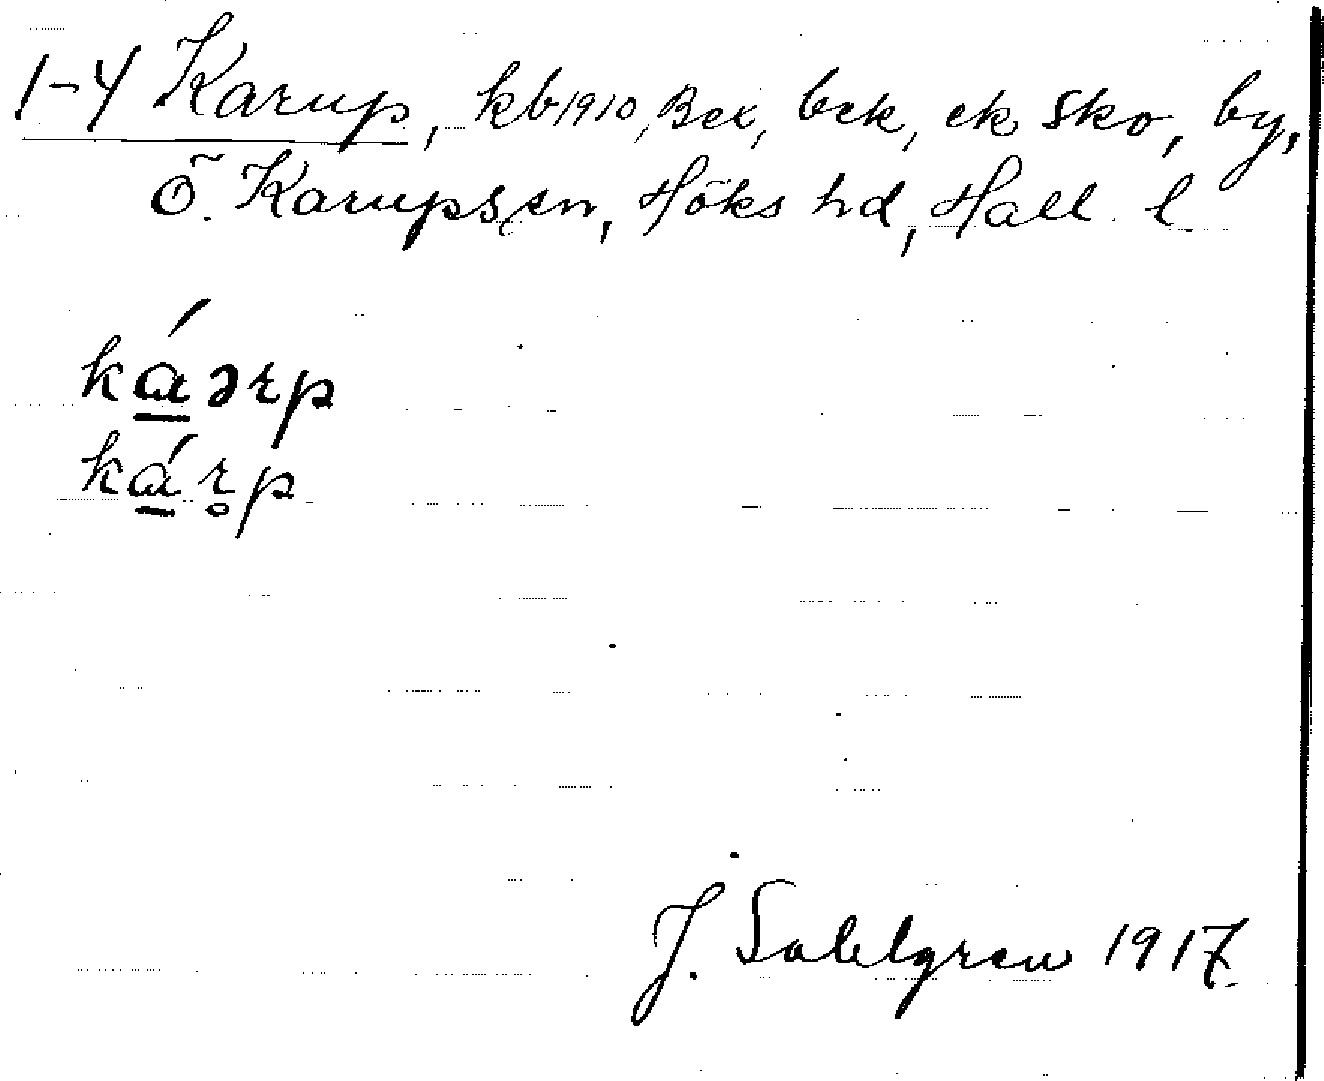 1-4 Karup, kb 1910, Bex, bek, ek sko, by,
Ö. Karups sn, Höks hd, Hall. l
ká̱ərp
ká̱r̥p
J. Sahlgren 1917